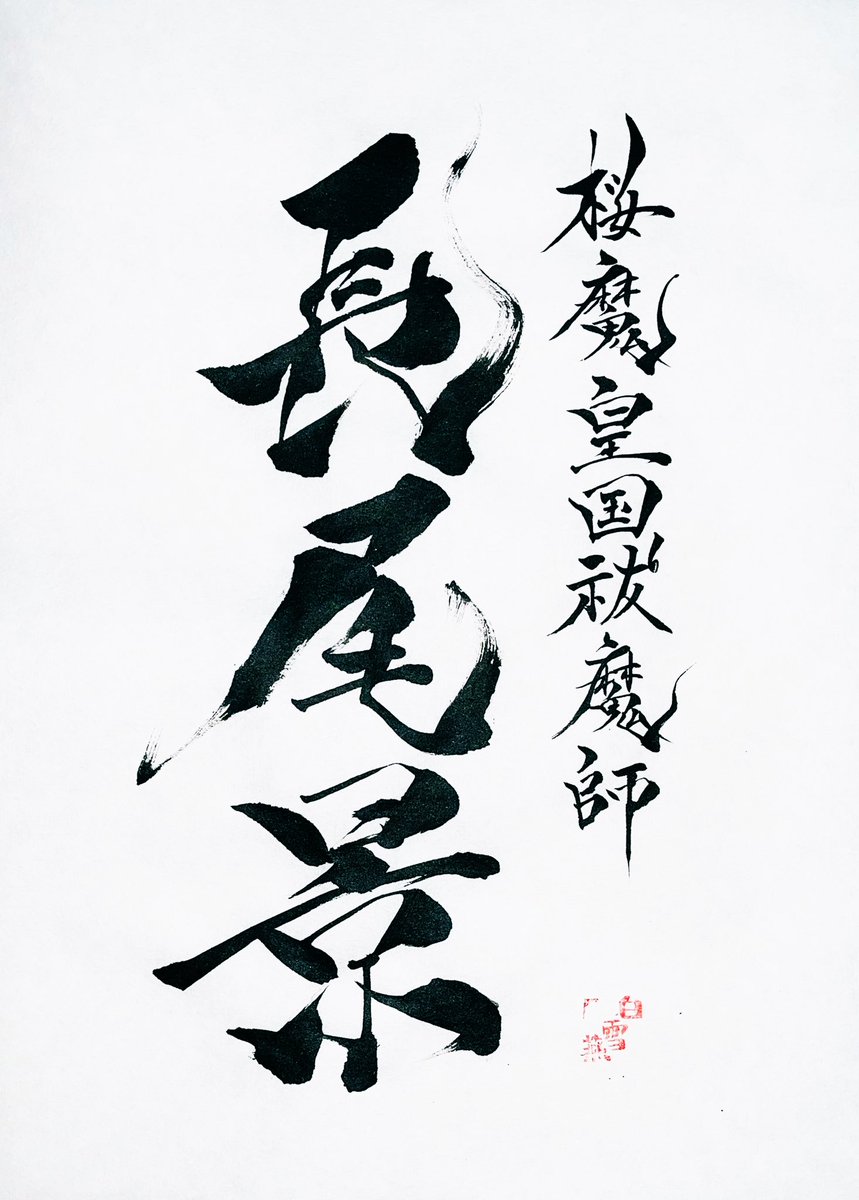 桜魔皇国祓魔師
長尾景
白雪